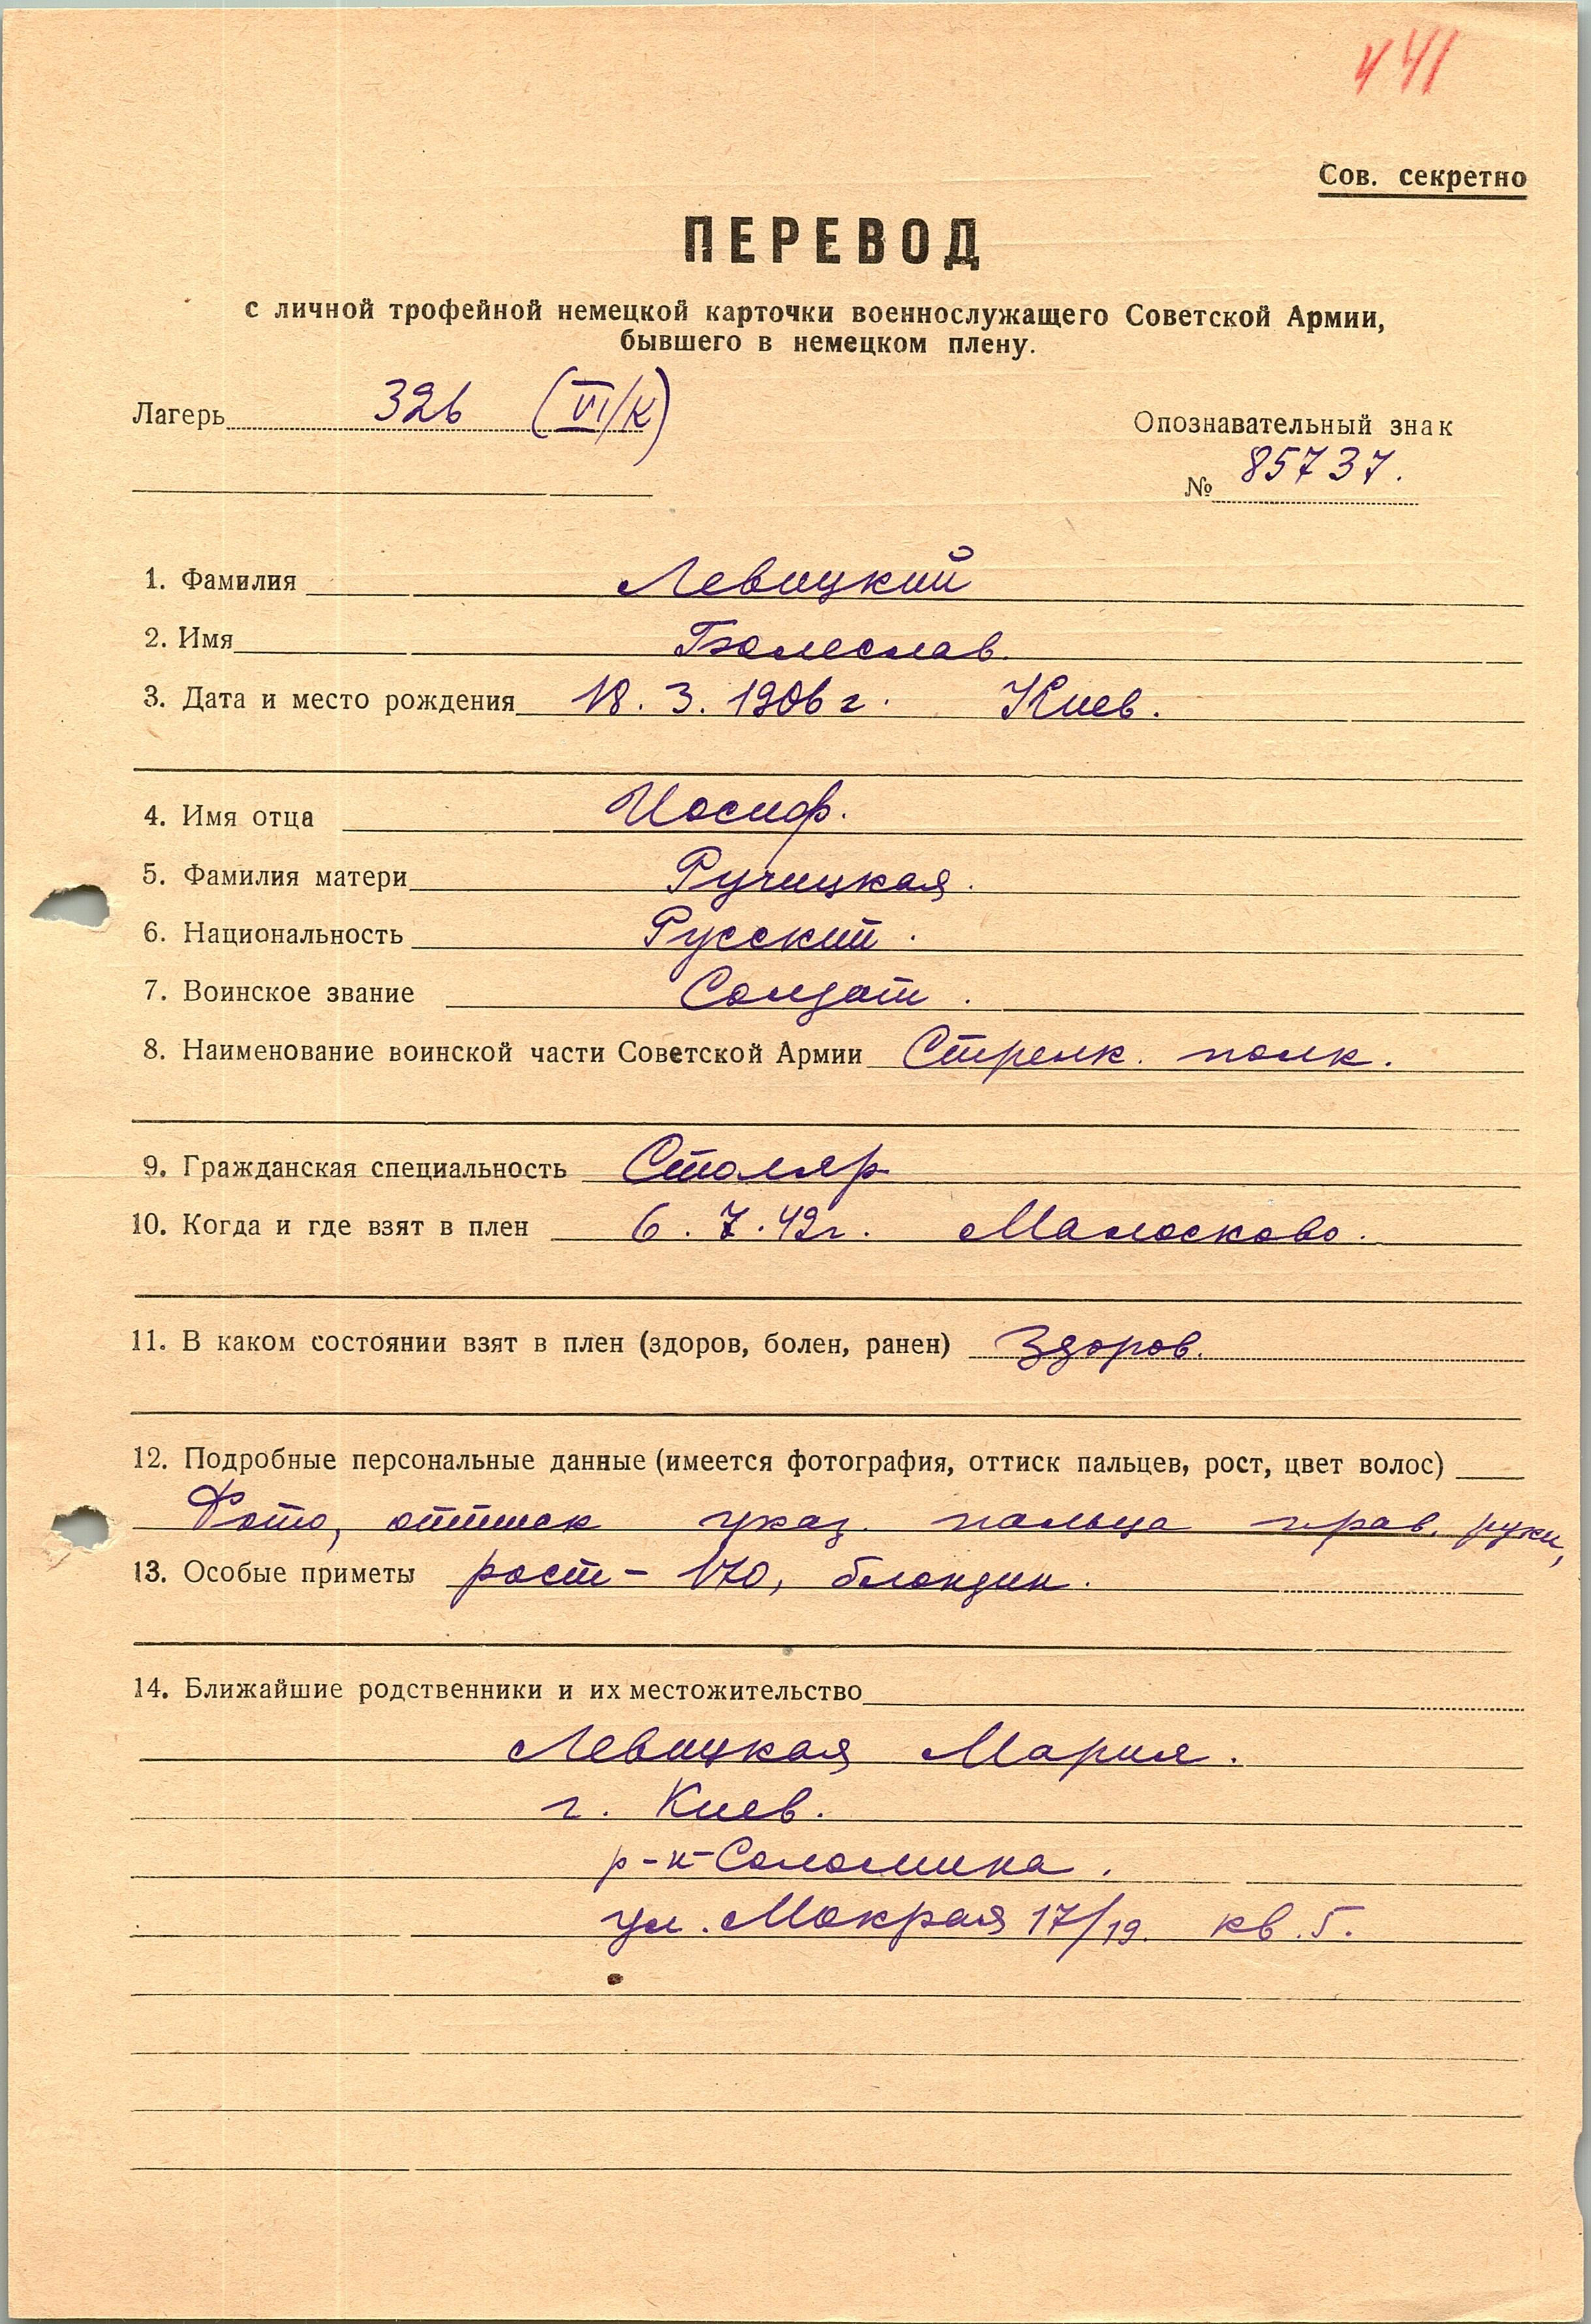 441
Сов. секретно
ПЕРЕВОД
с личной трофейной немецкой карточки военнослужащего Советской Армии,
бывшего в немецком плену.
Лагерь 326 (VI/К)
Опознавательный знак
№ 85737.
1. Фамилия Левицкий
2. Имя Болеслав.
3. Дата и место рождения 18. 3. 1906 г. Киев.
4. Имя отца Иосиф.
5. Фамилия матери Ручицкая.
6. Национальность Русский.
7. Воинское звание Солдат.
8. Наименование воинской части Советской Армии Стрелк. полк.
9. Гражданская специальность Столяр
10. Когда и где взят в плен 6. 7. 42г. Малосково.
11. В каком состоянии взят в плен (здоров, болен, ранен) Здоров.
12. Подробные персональные данные (имеется фотография, оттиск пальцев, рост, цвет волос)
Фото, оттиск указ. пальца прав. руки,
13. Особые приметы рост - 170, блондин.
14. Ближайшие родственники и их местожительство
Левицкая Мария.
г. Киев.
р-н Соломинка.
ул. Мокрая 17/19. кв. 5.